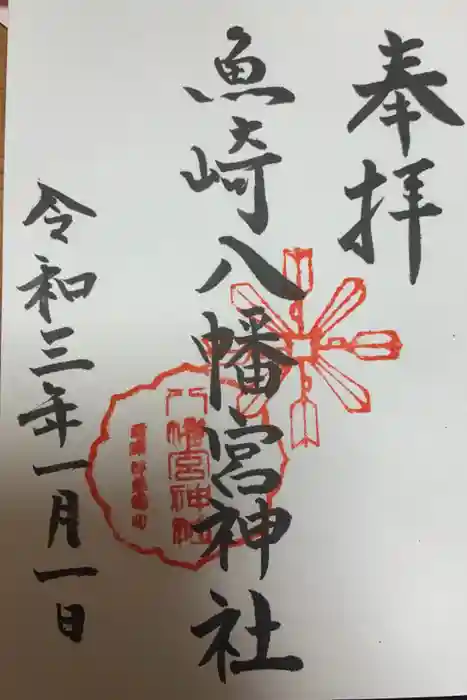 奉拝
魚崎八幡宮神社
八幡宮神社
令和三年一月一日